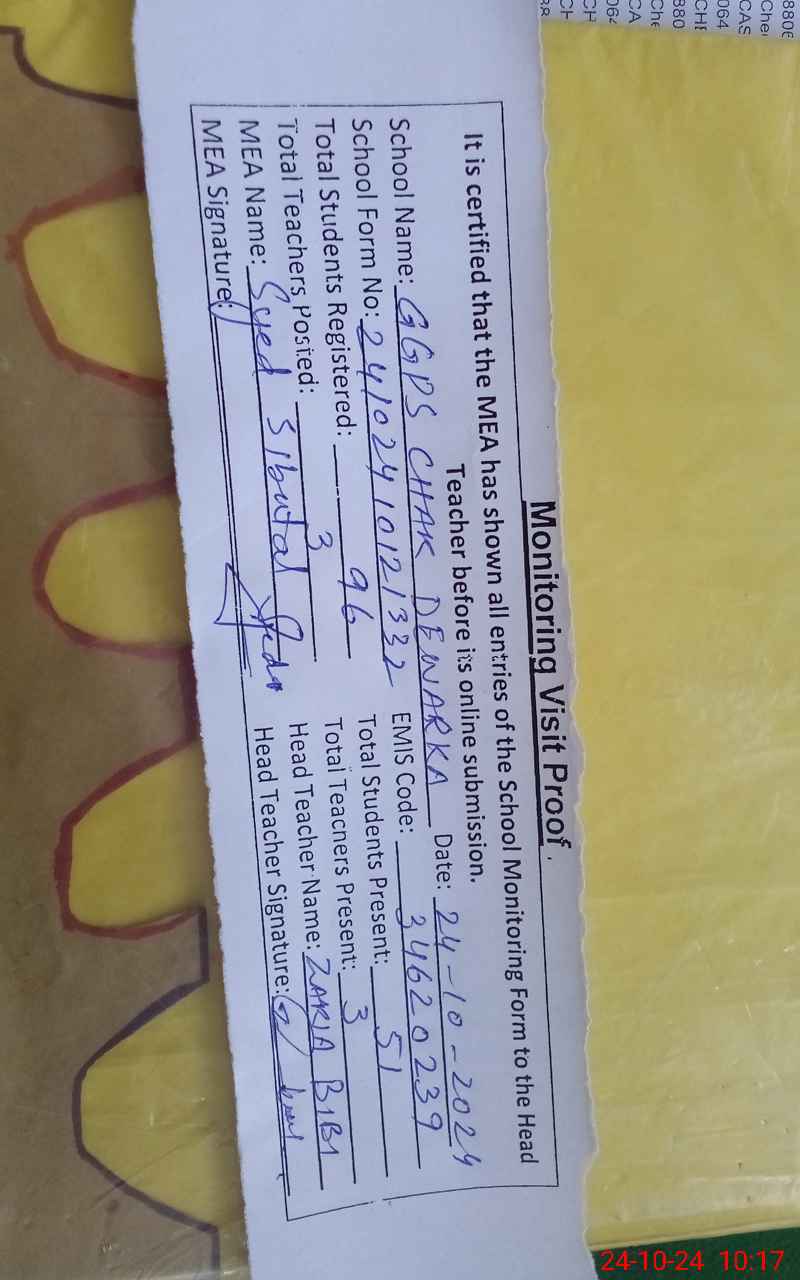 Monitoring Visit Proof.
It is certified that the MEA has shown all entries of the School Monitoring Form to the Head
Teacher before its online submission.
School Name: GGPS CHAK DEWARKA Date: 24-10-2024
School Form No: 24102410121332 EMIS Code: 34620239
Total Students Registered: 96 Total Students Present: 51
Total Teachers Posted: 3 Total Teachers Present: 3
MEA Name: Syed Head Teacher Name: ZAKIA BIBI
MEA Signature: Head Teacher Signature:
24-10-24 10:17